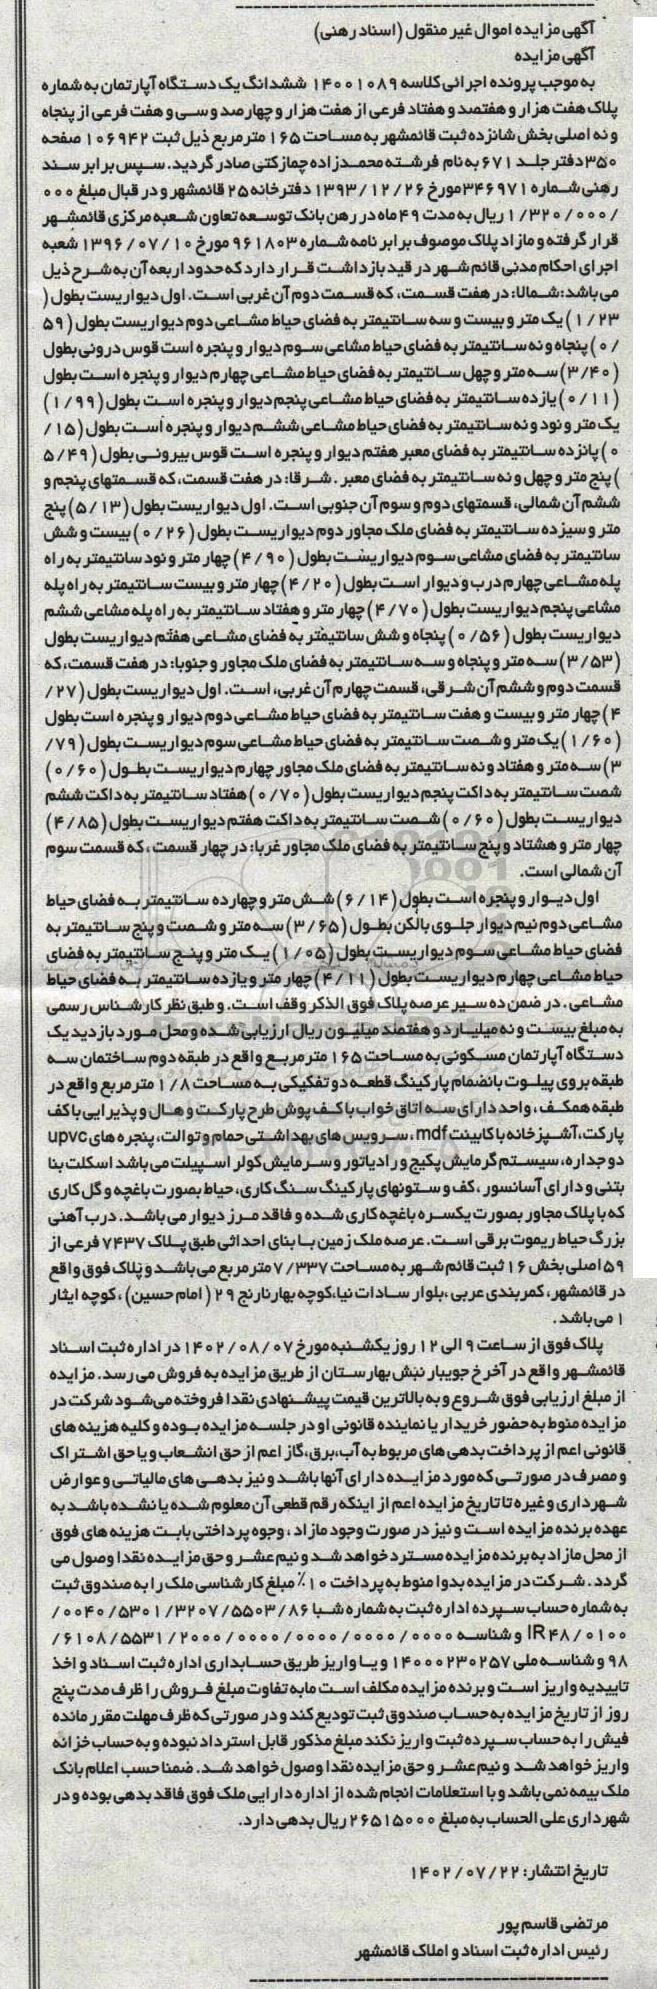 آگهی مزایده اموال غیر منقول (اسناد رهنی)
آگهی مزایده
به موجب پرونده اجرائی کلاسه ۱۴۰۰۱۰۸۹ ششدانگ یک دستگاه آپارتمان به شماره
پلاک هفت هزار و هفتصد و هفتاد فرعی از هفت هزار و چهارصد و سی و هفت فرعی از پنجاه
و نه اصلی بخش شانزده ثبت قائمشهر به مساحت ۱۶۵ مترمربع ذیل ثبت ۱۰۶۹۴۲ صفحه
۳۵۰ دفتر جلد ۶۷۱ به نام فرشته محمدزاده چمازکتی صادر گردید. سپس برابر سند
رهنی شماره ۳۴۶۹۷۱ مورخ ۱۳۹۳/۱۲/۲۶ دفترخانه ۲۵ قائمشهر و در قبال مبلغ ۰۰۰
/۱/۳۲۰/۰۰۰ ریال به مدت ۴۹ ماه در رهن بانک توسعه تعاون شعبه مرکزی قائمشهر
قرار گرفته و مازاد پلاک موصوف برابر نامه شماره ۹۶۱۸۰۳ مورخ ۱۳۹۶/۰۷/۱۰ شعبه
اجرای احکام مدنی قائم شهر در قید بازداشت قرار دارد که حدود اربعه آن به شرح ذیل
می باشد: شمالا: در هفت قسمت، که قسمت دوم آن غربی است. اول دیواریست بطول (
۱/۲۳) یک متر و بیست و سه سانتیمتر به فضای حیاط مشاعی دوم دیواریست بطول (۵۹
/۰) پنجاه و نه سانتیمتر به فضای حیاط مشاعی سوم دیوار و پنجره است قوس درونی بطول
(۳/۴۰) سه متر و چهل سانتیمتر به فضای حیاط مشاعی چهارم دیوار و پنجره است بطول
(۰/۱۱) یازده سانتیمتر به فضای حیاط مشاعی پنجم دیوار و پنجره است بطول (۱/۹۹)
یک متر و نود و نه سانتیمتر به فضای حیاط مشاعی ششم دیوار و پنجره است بطول (۱۵/
۰) پانزده سانتیمتر به فضای معبر هفتم دیوار و پنجره است قوس بیرونی بطول (۵/۴۹
) پنج متر و چهل و نه سانتیمتر به فضای معبر. شرقا: در هفت قسمت، که قسمتهای پنجم و
ششم آن شمالی، قسمتهای دوم و سوم آن جنوبی است. اول دیواریست بطول (۵/۱۳) پنج
متر و سیزده سانتیمتر به فضای ملک مجاور دوم دیواریست بطول (۰/۲۶) بیست و شش
سانتیمتر به فضای مشاعی سوم دیواریست بطول (۴/۹۰) چهار متر و نود سانتیمتر به راه
پله مشاعی چهارم درب و دیوار است بطول (۴/۲۰) چهار متر و بیست سانتیمتر به راه پله
مشاعی پنجم دیواریست بطول (۴/۷۰) چهار متر و هفتاد سانتیمتر به راه پله مشاعی ششم
دیواریست بطول (۰/۵۶) پنجاه و شش سانتیمتر به فضای مشاعی هفتم دیواریست بطول
(۳/۵۳) سه متر و پنجاه و سه سانتیمتر به فضای ملک مجاور و جنوبا: در هفت قسمت، که
قسمت دوم و ششم آن شرقی، قسمت چهارم آن غربی، است. اول دیواریست بطول (۲۷/
۴) چهار متر و بیست و هفت سانتیمتر به فضای حیاط مشاعی دوم دیوار و پنجره است بطول
(۱/۶۰) یک متر و شصت سانتیمتر به فضای حیاط مشاعی سوم دیواریست بطول (۷۹/
۳) سه متر و هفتاد و نه سانتیمتر به فضای ملک مجاور چهارم دیواریست بطول (۰/۶۰)
شصت سانتیمتر به داکت پنجم دیواریست بطول (۰/۷۰) هفتاد سانتیمتر به داکت ششم
دیواریست بطول (۰/۶۰) شصت سانتیمتر به داکت هفتم دیواریست بطول (۴/۸۵)
چهار متر و هشتاد و پنج سانتیمتر به فضای ملک مجاور غربا: در چهار قسمت، که قسمت سوم
آن شمالی است.
اول دیوار و پنجره است بطول (۶/۱۴) شش متر و چهارده سانتیمتر به فضای حیاط
مشاعی دوم نیم دیوار جلوی بالکن بطول (۳/۶۵) سه متر و شصت و پنج سانتیمتر به
فضای حیاط مشاعی سوم دیواریست بطول (۱/۰۵) یک متر و پنج سانتیمتر به فضای
حیاط مشاعی چهارم دیواریست بطول (۴/۱۱) چهار متر و یازده سانتیمتر به فضای حیاط
مشاعی. در ضمن ده سیر عرصه پلاک فوق الذکر وقف است. و طبق نظر کارشناس رسمی
به مبلغ بیست و نه میلیارد و هفتصد میلیون ریال ارزیابی شده و محل مورد بازدید یک
دستگاه آپارتمان مسکونی به مساحت ۱۶۵ مترمربع واقع در طبقه دوم ساختمان سه
طبقه بروی پیلوت بانضمام پارکینگ قطعه دو تفکیکی به مساحت ۱/۸ مترمربع واقع در
طبقه همکف، واحد دارای سه اتاق خواب با کف پوش طرح پارکت و هال و پذیرایی با کف
پارکت، آشپزخانه با کابینت mdf، سرویس های بهداشتی حمام و توالت، پنجره های upvc
دو جداره، سیستم گرمایش پکیج و رادیاتور و سرمایش کولر اسپیلت می باشد اسکلت بنا
بتنی و دارای آسانسور، کف و ستونهای پارکینگ سنگ کاری، حیاط بصورت باغچه و گل کاری
که با پلاک مجاور بصورت یکسره باغچه کاری شده و فاقد مرز دیوار می باشد. درب آهنی
بزرگ حیاط ریموت برقی است. عرصه ملک زمین با بنای احداثی طبق پلاک ۷۴۳۷ فرعی از
۵۹ اصلی بخش ۱۶ ثبت قائم شهر به مساحت ۷/۳۳۷ مترمربع می باشد و پلاک فوق واقع
در قائمشهر، کمربندی عربی، بلوار سادات نیا، کوچه بهارنارنج ۲۹ (امام حسین)، کوچه ایثار
۱ می باشد.
پلاک فوق از ساعت ۹ الی ۱۲ روز یکشنبه مورخ ۱۴۰۲/۰۸/۰۷ در اداره ثبت اسناد
قائمشهر واقع در آخر خ جویبار نبش بهارستان از طریق مزایده به فروش می رسد. مزایده
از مبلغ ارزیابی فوق شروع و به بالاترین قیمت پیشنهادی نقدا فروخته می‌شود شرکت در
مزایده منوط به حضور خریدار یا نماینده قانونی او در جلسه مزایده بوده و کلیه هزینه های
قانونی اعم از پرداخت بدهی های مربوط به آب، برق، گاز اعم از حق انشعاب و یا حق اشتراک
و مصرف در صورتی که مورد مزایده دارای آنها باشد و نیز بدهی های مالیاتی و عوارض
شهرداری و غیره تا تاریخ مزایده اعم از اینکه رقم قطعی آن معلوم شده یا نشده باشد به
عهده برنده مزایده است و نیز در صورت وجود مازاد، وجوه پرداختی بابت هزینه های فوق
از محل مازاد به برنده مزایده مسترد خواهد شد و نیم عشر و حق مزایده نقدا وصول می
گردد. شرکت در مزایده بدوا منوط به پرداخت ۱۰٪ مبلغ کارشناسی ملک را به صندوق ثبت
به شماره حساب سپرده اداره ثبت به شماره شبا ۰۰۴۰/۵۳۰۱/۳۲۰۷/۵۵۰۳/۸۶/
IR۴۸/۰۱۰۰ و شناسه ۶۱۰۸/۵۵۳۱/۲۰۰۰/۰۰۰۰/۰۰۰۰/۰۰۰۰/۰۰۰۰/
۹۸ و شناسه ملی ۱۴۰۰۰۲۳۰۲۵۷ و یا واریز طریق حسابداری اداره ثبت اسناد و اخذ
تاییدیه واریز است و برنده مزایده مکلف است مابه تفاوت مبلغ فروش را ظرف مدت پنج
روز از تاریخ مزایده به حساب صندوق ثبت تودیع کند و در صورتی که ظرف مهلت مقرر مانده
فیش را به حساب سپرده ثبت واریز نکند مبلغ مذکور قابل استرداد نبوده و به حساب خزانه
واریز خواهد شد و نیم عشر و حق مزایده نقدا وصول خواهد شد. ضمنا حسب اعلام بانک
ملک بیمه نمی باشد و با استعلامات انجام شده از اداره دارایی ملک فوق فاقد بدهی بوده و در
شهرداری علی الحساب به مبلغ ۲۶۵۱۵۰۰۰ ریال بدهی دارد.
تاریخ انتشار: ۱۴۰۲/۰۷/۲۲
مرتضی قاسم پور
رئیس اداره ثبت اسناد و املاک قائمشهر